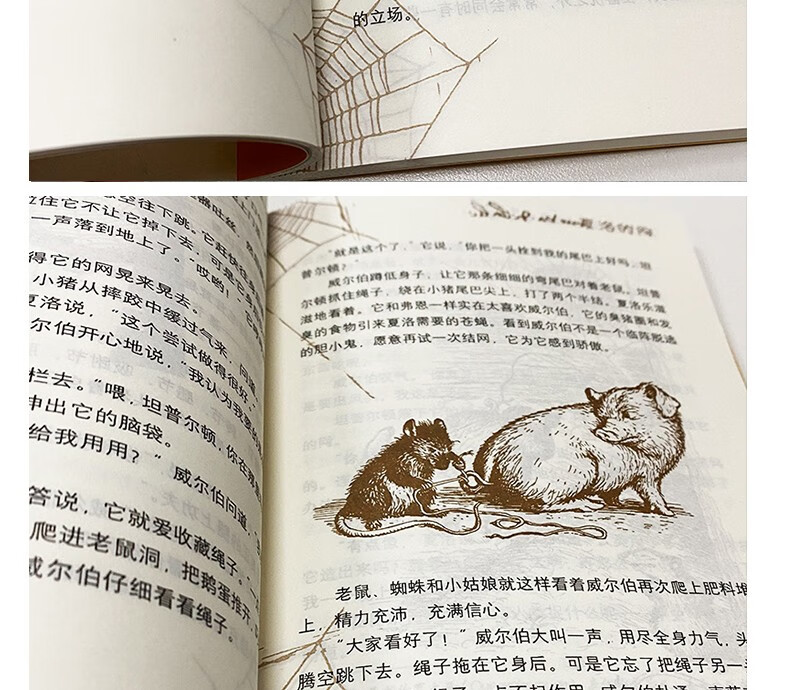 的立场。
器吐丝，
空往下跳。它赶快
住它不让它掉下去，可是它身
一声落到地上了。“哎哟！”它
得它的网晃来晃去。
小猪从摔跤中缓过气来，问道
夏洛说，“这个尝试做得很好。”
尔伯开心地说，“我认为我要的
栏去。“喂，坦普尔顿，你在
伸出它的脑袋。
给我用用？”威尔伯问道，
答说，它就爱收藏绳子。
爬进老鼠洞，把鹅蛋推开，
威尔伯仔细看看绳子。
“就是这个了，”它说，“你把一头拴到我的尾巴上好吗，坦
普尔顿？”
威尔伯蹲低身子，让它那条细细的弯尾巴对着老鼠。坦普
尔顿抓住绳子，绕在小猪尾巴尖上，打了两个半结。夏洛乐滋
滋地看着。它和弗恩一样实在太喜欢威尔伯，它的臭猪圈和发
臭的食物引来夏洛需要的苍蝇。看到威尔伯不是一个临阵脱逃
的胆小鬼，愿意再试一次结网，它为它感到骄傲。
老鼠、蜘蛛和小姑娘就这样看着威尔伯再次爬上肥料堆
上，精力充沛，充满信心。
“大家看好了！”威尔伯大叫一声，用尽全身力气，头
腾空跳下去。绳子拖在它身后。可是它忘了把绳子另一